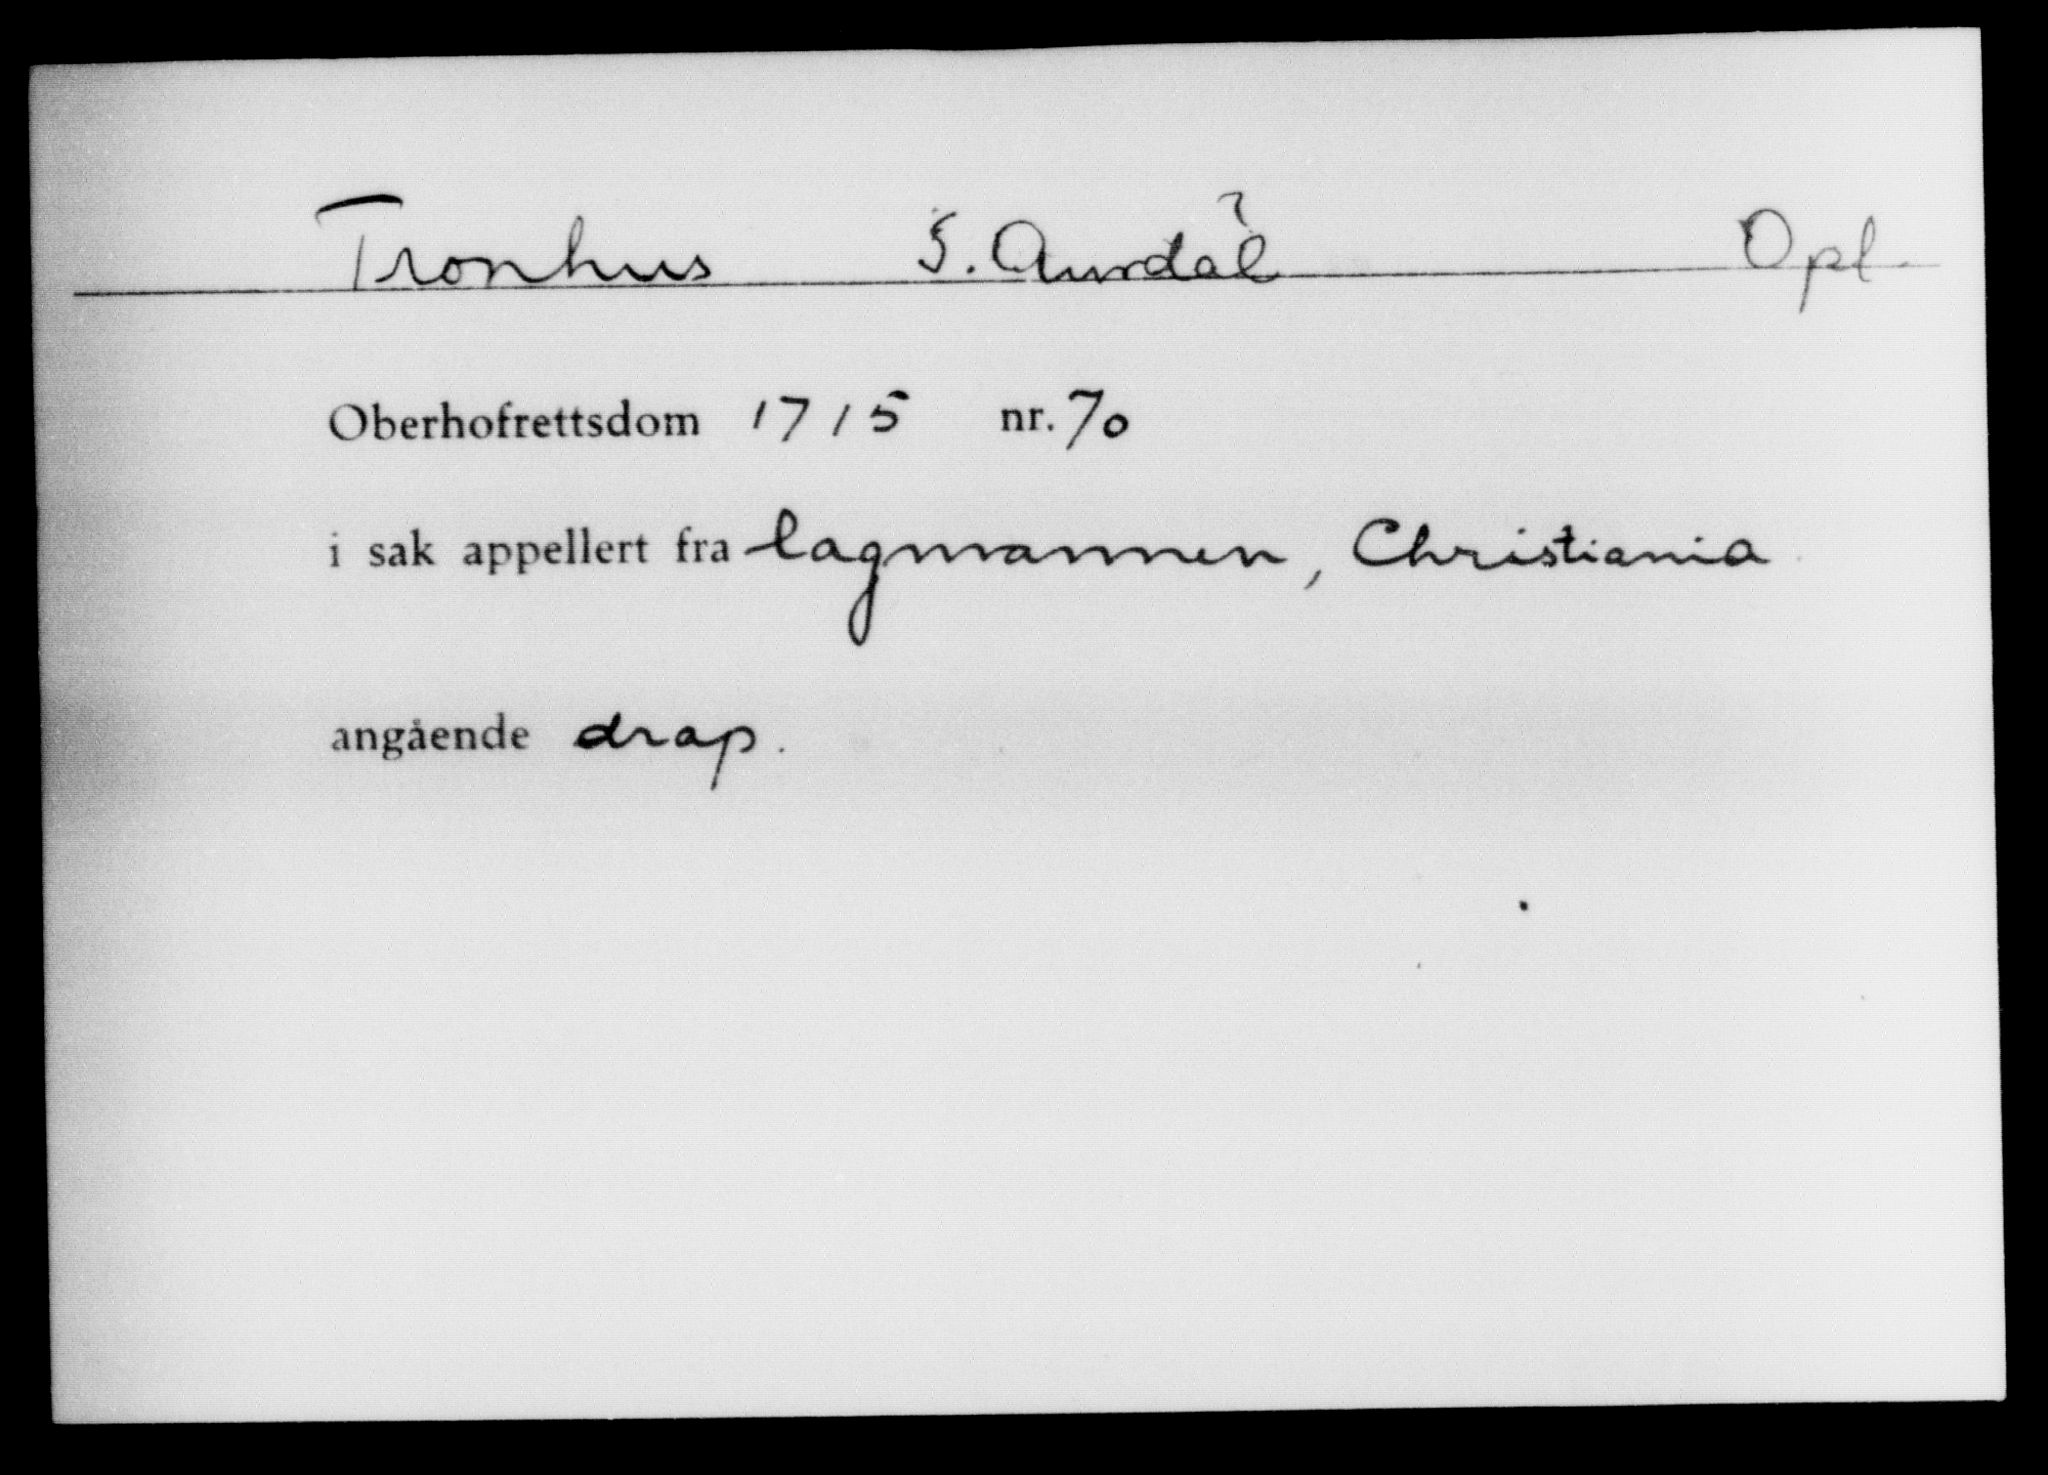 Tronhus S. Aurdal ? Opl.
Oberhofrettsdom 1715 nr. 70
i sak appellert fra lagmannen, Christiania
angående drap.